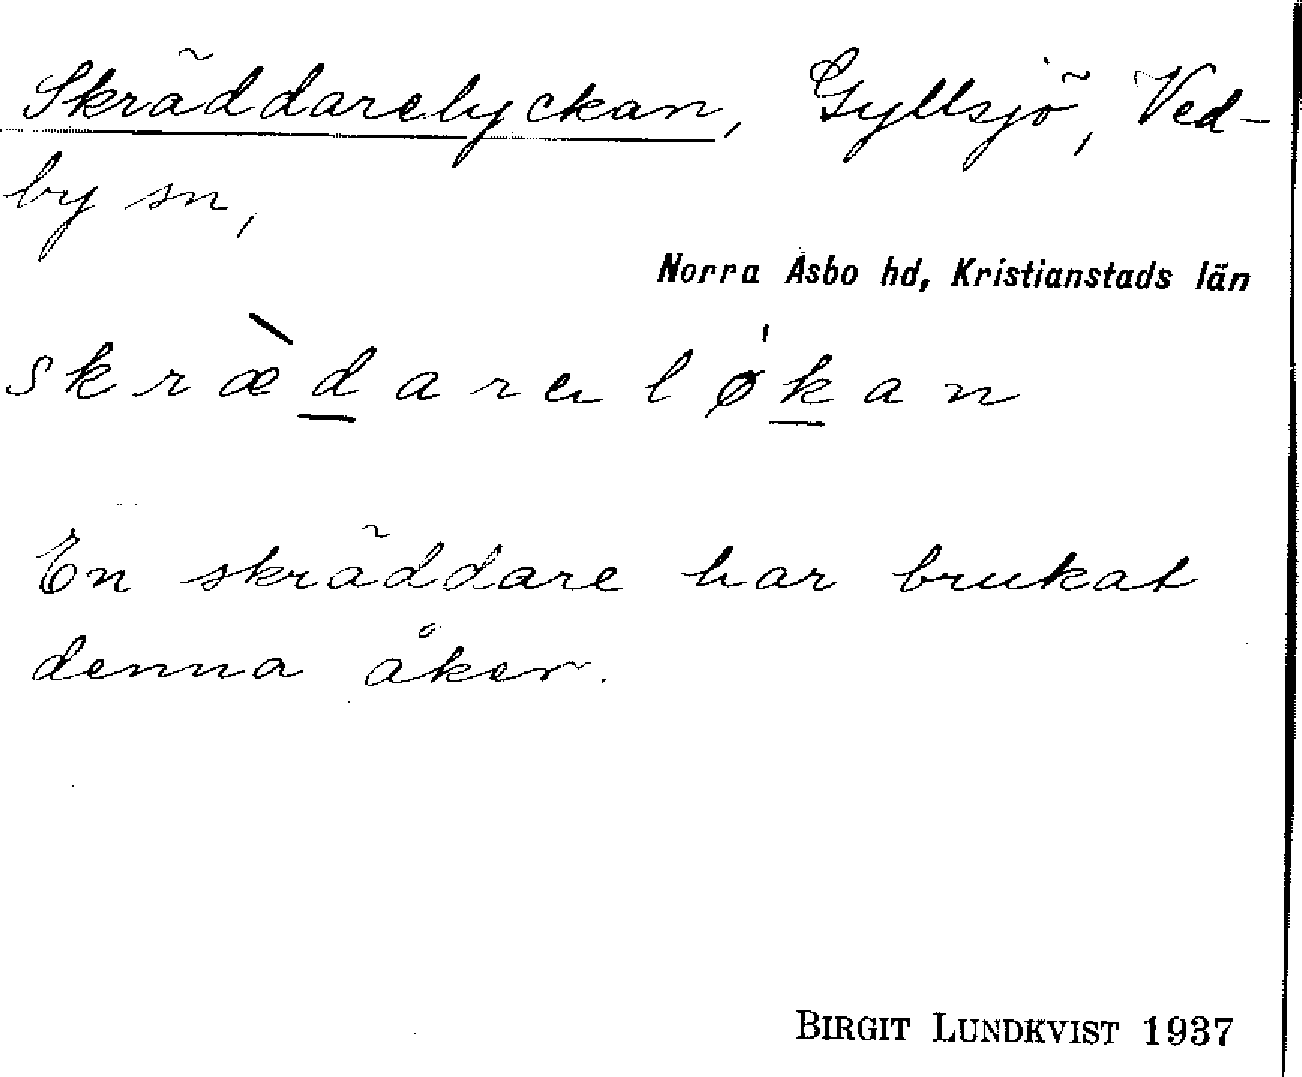 Skräddarelyckan, Gyllsjö, Ved-
by sn,
Norra Åsbo hd, Kristianstads län
skræ̀d̲arəløḱ̲an
En skräddare har brukat
denna åker.
BIRGIT LUNDKVIST 1937